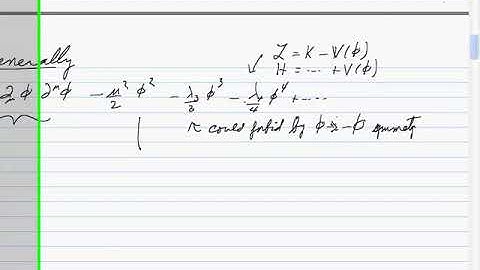 ℒ = K - V(ϕ)
enerally
H = ... + V(ϕ)
∂ ϕ ∂^μ ϕ - μ²/2 ϕ² - λ₃/3 ϕ³ - λ₄/4 ϕ⁴ + ....
could forbid by ϕ ⇌ -ϕ symmetry